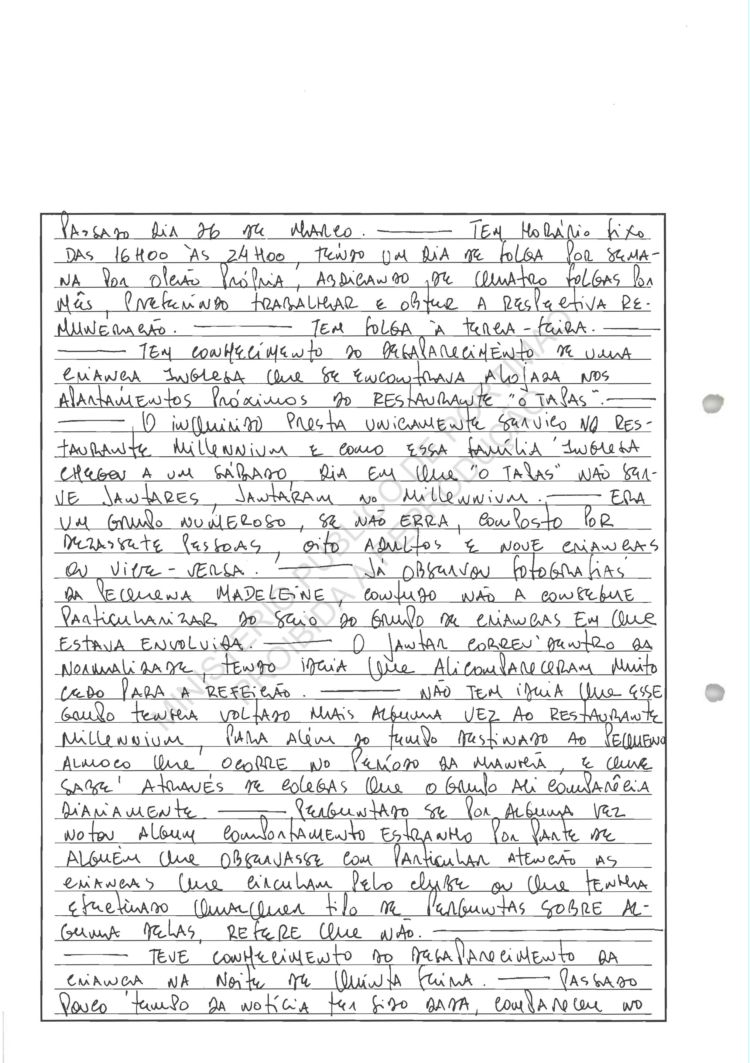 PASSADO DIA 26 DE MARÇO. ——— TEM HORÁRIO FIXO
DAS 16H00 ÀS 24H00, TENDO UM DIA DE FOLGA POR SEMA-
NA POR OPÇÃO PRÓPRIA, ABDICANDO DE QUATRO FOLGAS POR
MÊS, PREFERINDO TRABALHAR E OBTER A RESPECTIVA RE-
MUNERAÇÃO. ——— TEM FOLGA À TERÇA-FEIRA. ———
——— TEM CONHECIMENTO DO DESAPARECIMENTO DE UMA
CRIANÇA INGLESA QUE SE ENCONTRAVA ALOJADA NOS
APARTAMENTOS PRÓXIMOS DO RESTAURANTE "O TAPAS". ———
——— O INQUIRIDO PRESTA UNICAMENTE SERVIÇO NO RES-
TAURANTE MILLENNIUM E COMO ESSA FAMÍLIA INGLESA
CHEGOU A UM SÁBADO, DIA EM QUE "O TAPAS" NÃO SER-
VE JANTARES, JANTARAM NO MILLENNIUM. ——— ERA
UM GRUPO NUMEROSO, SE NÃO ERRA, COMPOSTO POR
DEZASSETE PESSOAS, OITO ADULTOS E NOVE CRIANÇAS
OU VICE-VERSA. ——— JÁ OBSERVOU FOTOGRAFIAS
DA PEQUENA MADELEINE, CONTUDO NÃO A CONSEGUE
PARTICULARIZAR DO SEIO DO GRUPO DE CRIANÇAS EM QUE
ESTAVA ENVOLVIDA. ——— O JANTAR CORREU DENTRO DA
NORMALIDADE, TENDO IDEIA QUE ALI COMPARECERAM MUITO
CEDO PARA A REFEIÇÃO. ——— NÃO TEM IDEIA QUE ESSE
GRUPO TENHA VOLTADO MAIS ALGUMA VEZ AO RESTAURANTE
MILLENNIUM, PARA ALÉM DO TEMPO DESTINADO AO PEQUENO
ALMOÇO QUE OCORRE NO PERÍODO DA MANHÃ, E QUE
SABE ATRAVÉS DE COLEGAS QUE O GRUPO ALI COMPARECIA
DIARIAMENTE ——— PERGUNTADO SE POR ALGUMA VEZ
NOTOU ALGUM COMPORTAMENTO ESTRANHO POR PARTE DE
ALGUÉM QUE OBSERVASSE COM PARTICULAR ATENÇÃO AS
CRIANÇAS QUE CIRCULAM PELO CLUBE OU QUE TENHA
EFECTUADO QUALQUER TIPO DE PERGUNTAS SOBRE AL-
GUMA DELAS, REFERE QUE NÃO. ———
——— TEVE CONHECIMENTO DO DESAPARECIMENTO DA
CRIANÇA NA NOITE DE QUINTA FEIRA. ——— PASSADO
POUCO TEMPO DA NOTÍCIA TER SIDO DADA, COMPARECEU NO
MINISTÉRIO PÚBLICO DE PORTIMÃO
PROIBIDA A REPRODUÇÃO